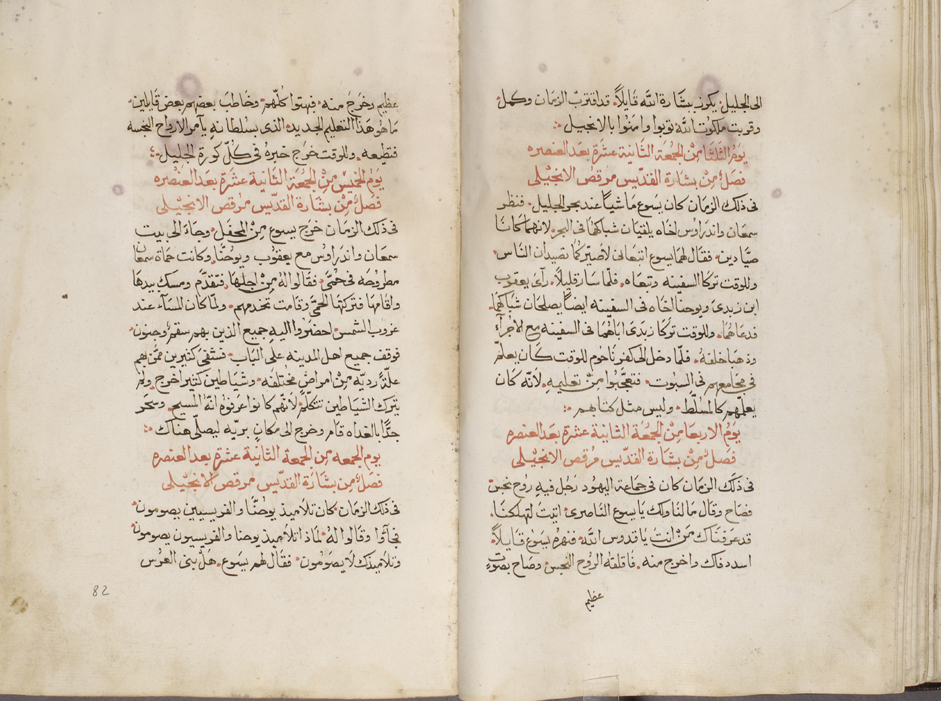 الى الجليل يكرز ببشارة الله قايلاً قد اقترب الزمان وكمل
وقربت ملكوت الله توبوا وامنوا بالانجيل
يوم الثلثا من الجمعة الثانية عشرة بعد العنصره
فصل من بشارة القديس مرقص الانجيلى
فى ذلك الزمان كان يسوع ماشياً عند بحر الجليل فنظر
سمعان واندراوس اخاه يلقيان شباكهما فى البحر لانهما كانا
صيادين فقال لهما يسوع اتبعانى لاصيركما تصيدان الناس
وللوقت تركا السفينه وتبعاه فلما سار قليلاً رأى يعقوب
ابن زبدى ويوحنا اخاه فى السفينه ايضاً يصلحان شباكهما
فدعاهما وللوقت تركا زبدى اباهما فى السفينه مع الاجرآء
وذهبا خلفه فلما دخل الى كفرناحوم للوقت كان يعلم
فى مجامعهم فى السبوت فتعجبوا من تعليمه لانه كان
يعلمهم كالمسلط وليس مثل كتابهم
يوم الاربعا من الجمعة الثانية عشرة بعد العنصره
فصل من بشارة القديس مرقص الانجيلى
فى ذلك الزمان كان فى جماعة اليهود رجل فيه روح نجس
فصاح وقال ما لنا ولك يا يسوع الناصرى اتيت لتهلكنا
قد عرفناك من انت يا قدوس الله فنهره يسوع قايلاً
اسدد فاك واخرج منه فاقلقه الروح النجس وصاح بصوت
عظيم
عظيم وخرج منه فبهتوا كلهم وخاطب بعضهم بعض قايلين
ما هو هذا التعليم الجديد الذى بسلطانه يأمر الارواح النجسه
فتطيعه وللوقت خرج خبره فى كل كورة الجليل
يوم الخميس من الجمعة الثانية عشرة بعد العنصره
فصل من بشارة القديس مرقص الانجيلى
فى ذلك الزمان خرج يسوع من المحفل وجاء الى بيت
سمعان واندراوس مع يعقوب ويوحنا وكانت حماة سمعان
مطروحه فى حمى فقالوا له من اجلها فتقدم ومسك بيدها
واقامها فتركتها الحمى وقامت تخدمهم ولما كان المسآء عند
غروب الشمس احضروا اليه جميع الذين بهم سقم وجنون
فوقف جميع اهل المدينه على الباب فشفى كثيرين ممن بهم
علة رديه من امراض مختلفه وشياطين كثير اخرج ولم
يترك الشياطين تتكلم لانهم كانوا عرفوه انه المسيح وسحر
جداً بالغداه قام وخرج الى مكان بريه ليصلى هناك
يوم الجمعه من الجمعة الثانية عشرة بعد العنصره
فصل من بشارة القديس مرقص الانجيلى
فى ذلك الزمان كان تلاميذ يوحنا والفريسيين يصومون
فجآءوا وقالوا له لماذا تلاميذ يوحنا والفريسيون يصومون
وتلاميذك لا يصومون فقال لهم يسوع هل بنى العرس
82